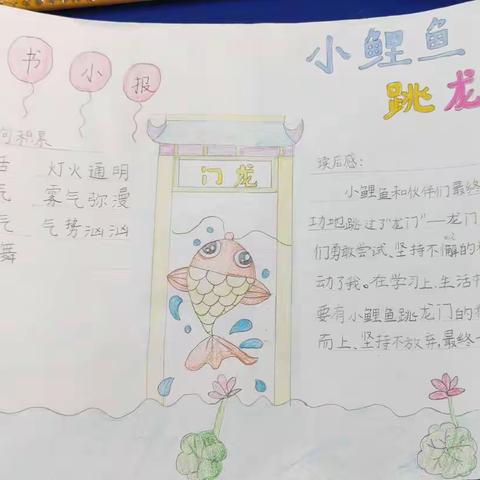 书小报
小鲤鱼
跳龙
词积累
活 灯火通明
气 雾气弥漫
气 气势汹汹
舞
门龙
读后感:
小鲤鱼和伙伴们最终
功地跳过了“龙门”—龙门
们勇敢尝试、坚持不懈的
动了我。在学习上,生活
要有小鲤鱼跳龙门的精
而上、坚持不放弃,最终